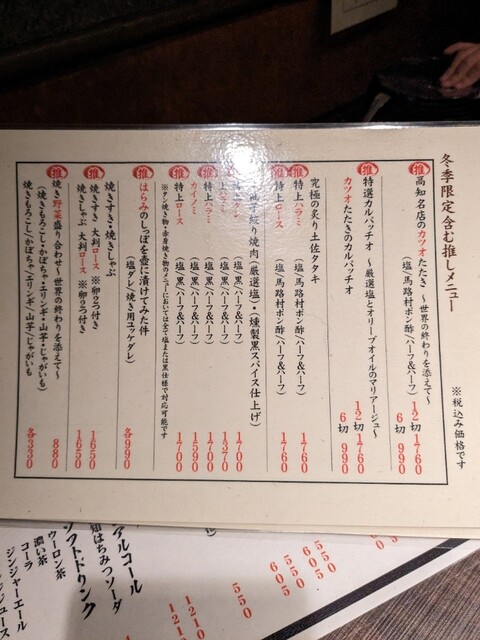 冬季限定含む推しメニュー
※税込み価格です
推 高知名店のカツオたたき ～世界の終わりを添えて～
(塩/馬路村ポン酢/ハーフ&ハーフ)
12切 1760
6切 990
推 特選カルパッチオ ～厳選塩とオリーブオイルのマリアージュ～
カツオたたきのカルパッチオ
12切 1760
6切 990
究極の炙り土佐タタキ
推 特上ハラミ (塩/馬路村ポン酢/ハーフ&ハーフ) 1760
推 特上ロース (塩/馬路村ポン酢/ハーフ&ハーフ) 1760
絞り焼肉・(厳選塩)・(燻製黒スパイス仕上げ)
推 タン (塩/黒/ハーフ&ハーフ) 1700
推 (塩/黒/ハーフ&ハーフ) 1370
推 特上ハラミ (塩/黒/ハーフ&ハーフ) 1700
推 カイノミ (塩/黒/ハーフ&ハーフ) 1590
特上ロース (塩/黒/ハーフ&ハーフ) 1700
※タン焼き物・赤身焼き物のメニューにおいては全て塩または黒仕様で対応可能です
推 はらみのしっぽを壺に漬けてみた件
(塩ダレ/焼き用ユッケダレ) 各990
焼きすき・焼きしゃぶ
推 焼きすき 大判ロース ※卵2つ付き 1650
焼きしゃぶ 大判ロース ※卵2つ付き 1650
推 焼き野菜盛り合わせ～世界の終わりを添えて～
(焼きもろこし・かぼちゃ・エリンギ・山芋・じゃがいも) 880
焼きもろこし/かぼちゃ/エリンギ/山芋/じゃがいも 各330
550
605
550
605
550
1210
1210
アルコール
知はちみつソーダ
ソフトドリンク
ウーロン茶
濃い茶
コーラ
ジンジャーエール